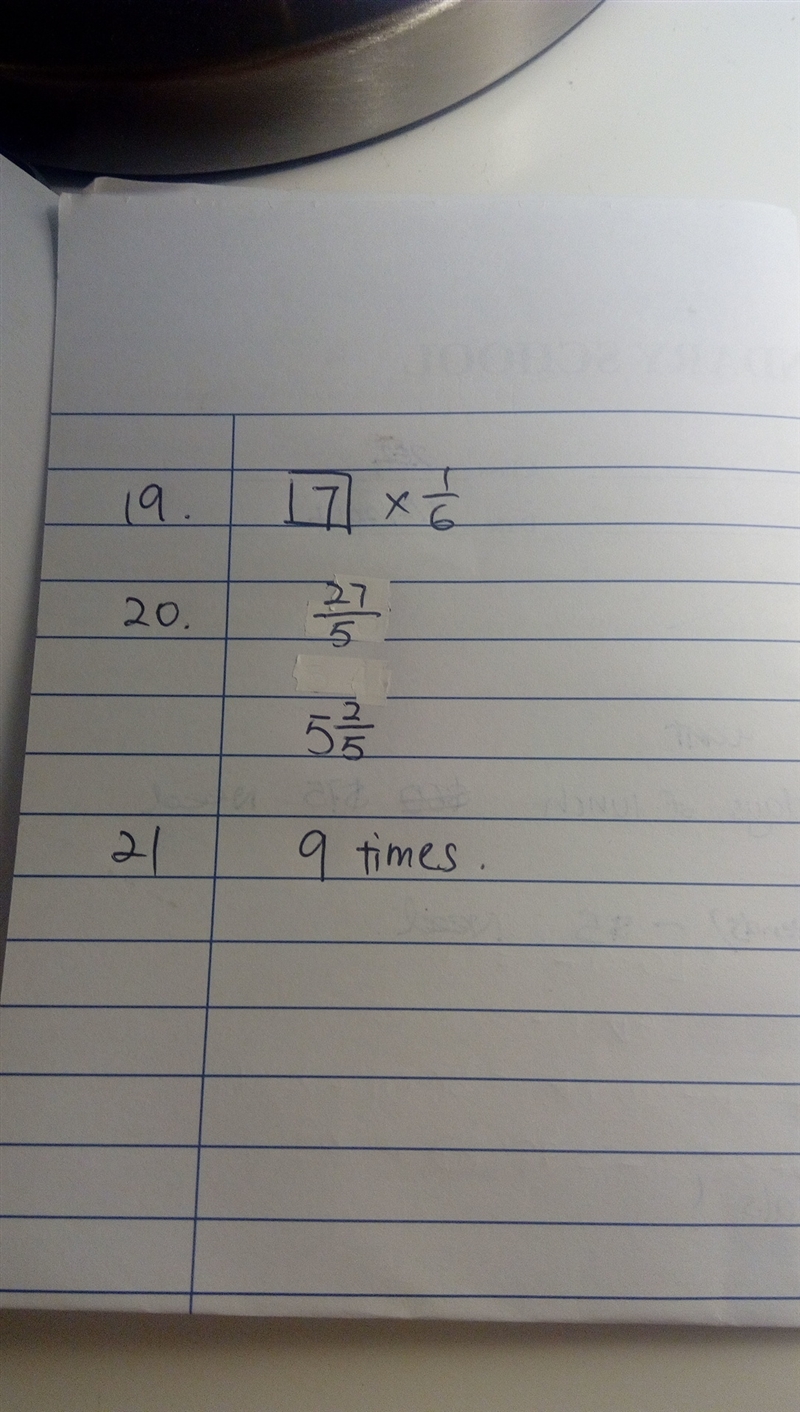 19. 17 × 1/6
20. 27/5
5 2/5
21 9 times.